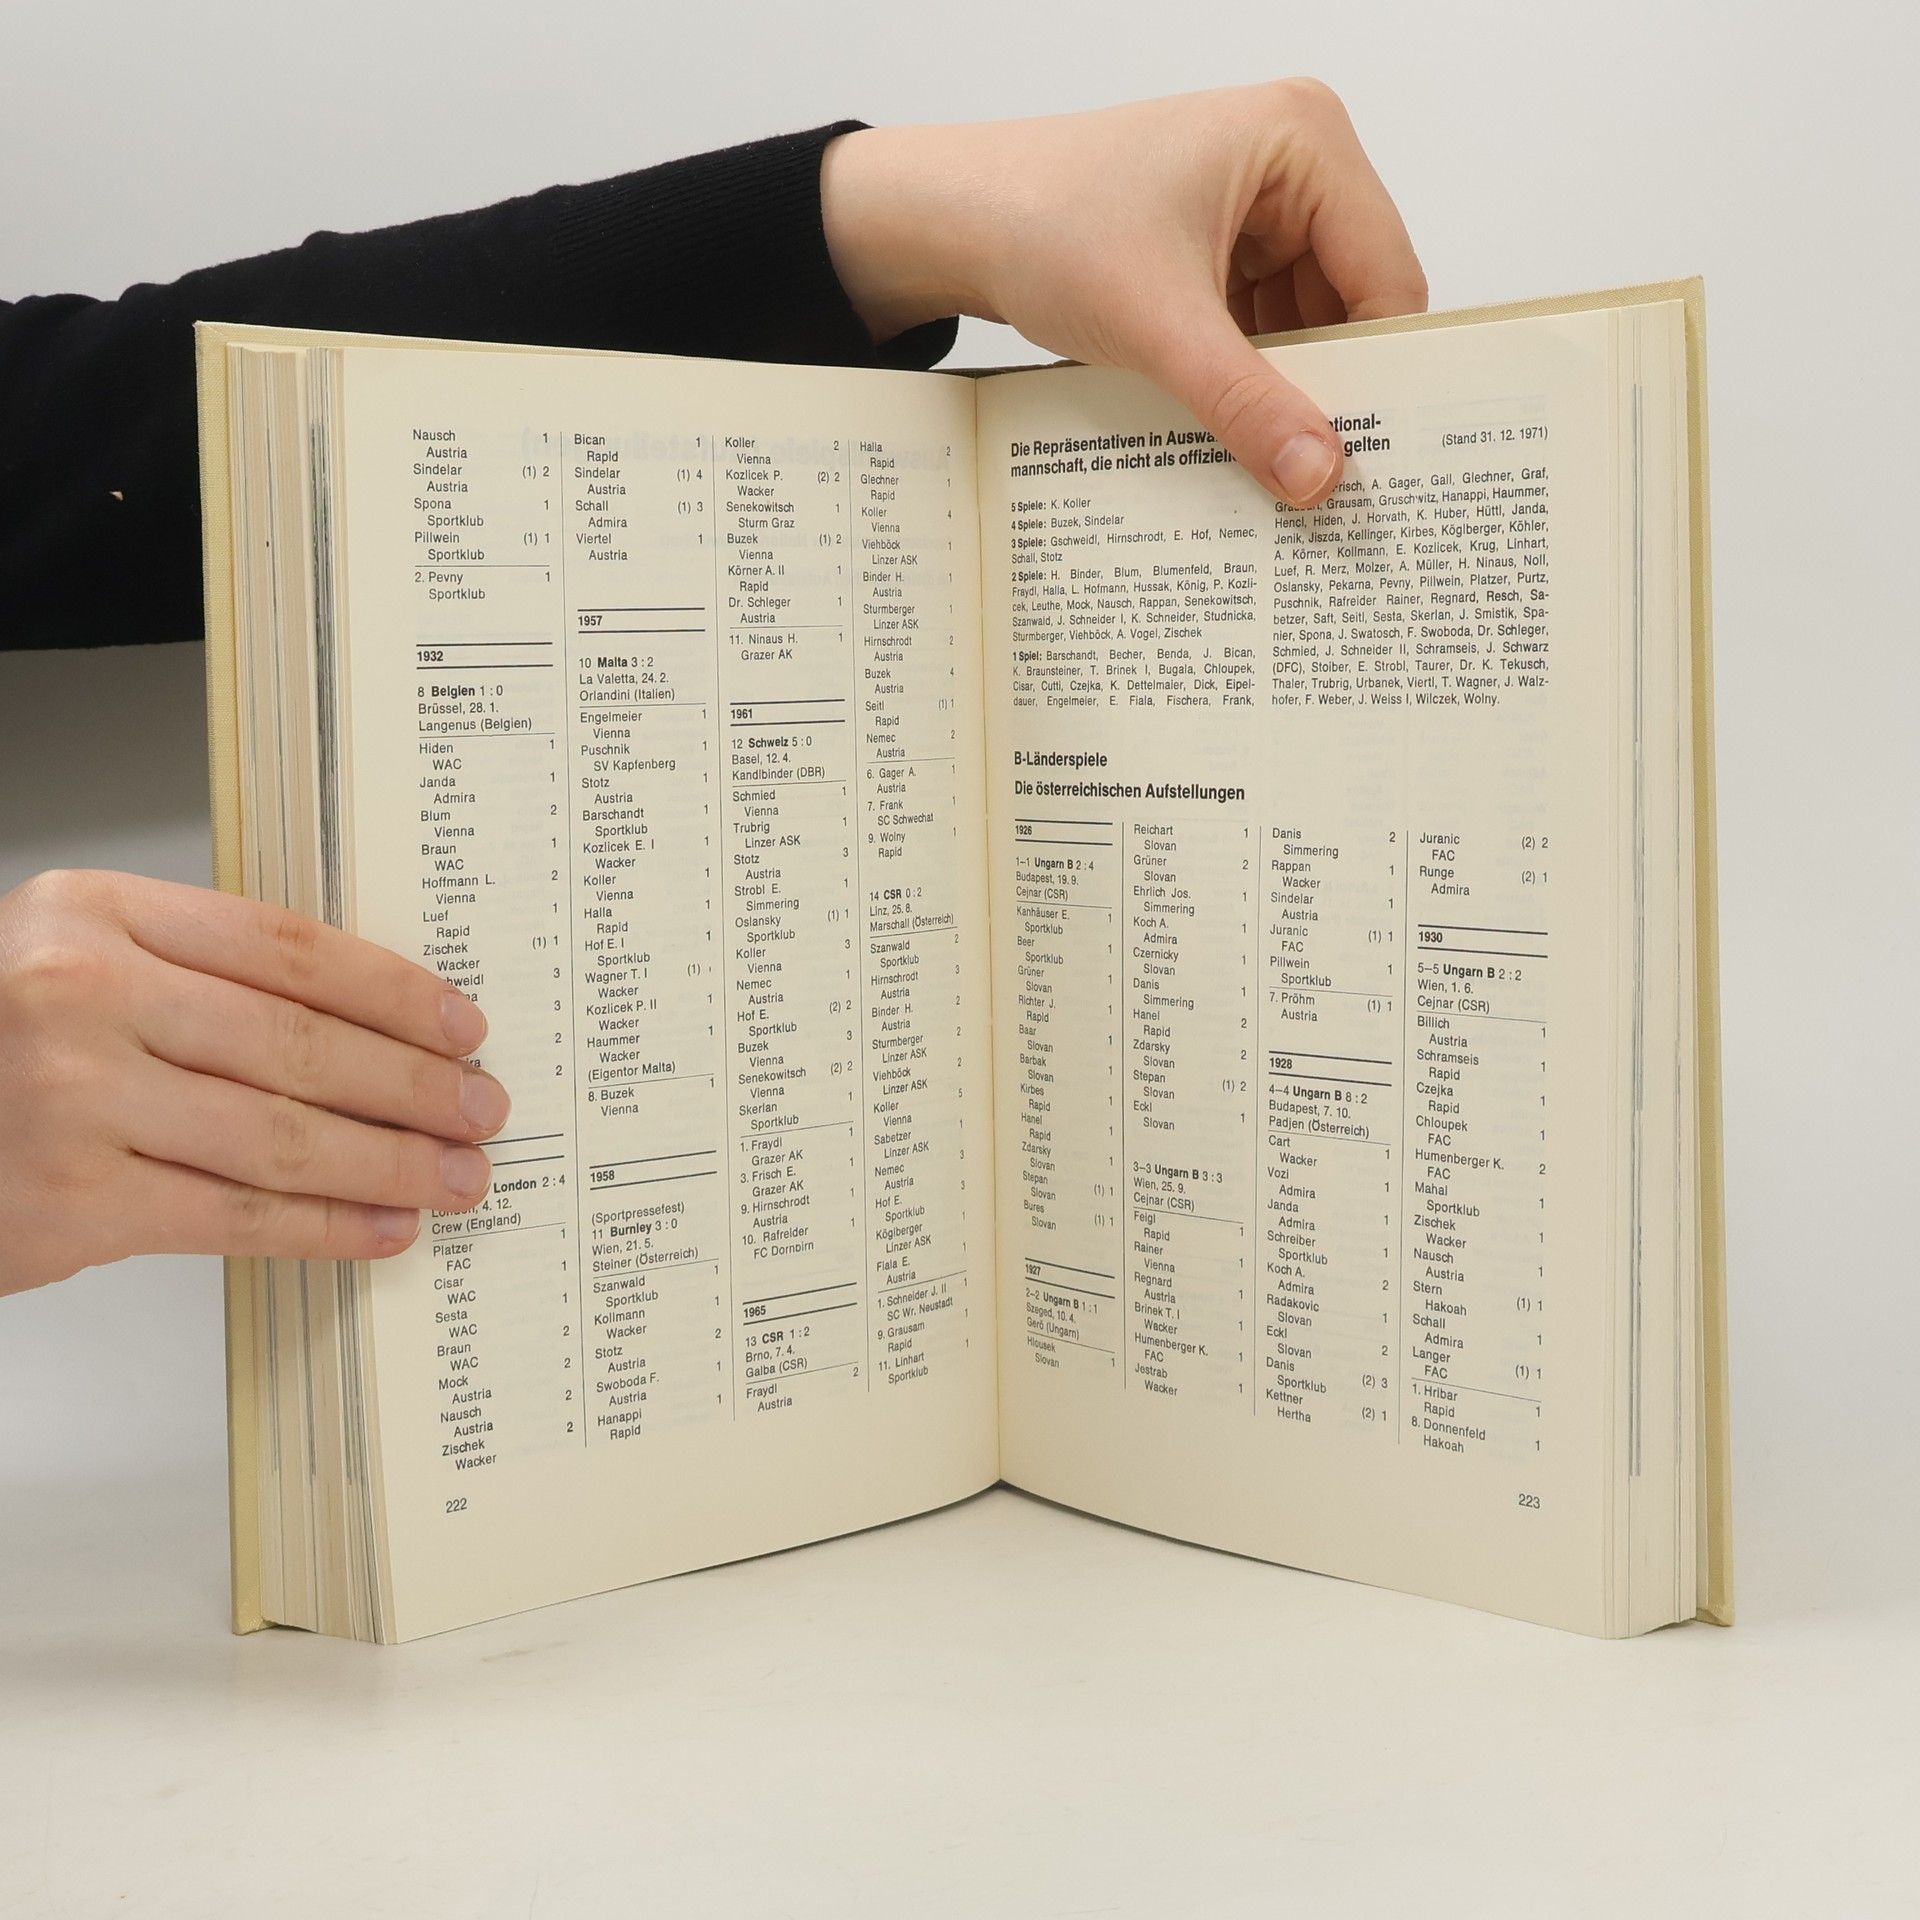 Nausch 1
Austria
Sindelar (1) 2
Austria
Spona 1
Sportklub
Pillwein (1) 1
Sportklub
2. Pevny 1
Sportklub
1932
8 Belgien 1 : 0
Brüssel, 28. 1.
Langenus (Belgien)
Hiden 1
WAC
Janda 1
Admira
Blum 2
Vienna
Braun 1
WAC
Hoffmann L. 2
Vienna
Luef 1
Rapid
Zischek (1) 1
Wacker
hweidl 3
na 3
2
ira 2
London 2 : 4
London, 4. 12.
Crew (England)
Platzer 1
FAC
Cisar 1
WAC
Sesta 1
WAC
Braun 2
WAC
Mock 2
Austria
Nausch 2
Austria
Zischek 2
Wacker
222
Bican 1
Rapid
Sindelar (1) 4
Austria
Schall (1) 3
Admira
Viertel 1
Austria
1957
10 Malta 3 : 2
La Valetta, 24. 2.
Orlandini (Italien)
Engelmeier 1
Vienna
Puschnik 1
SV Kapfenberg
Stotz 1
Austria
Barschandt 1
Sportklub
Kozlicek E. I 1
Wacker
Koller 1
Vienna
Halla 1
Rapid
Hof E. I 1
Sportklub
Wagner T. I (1)
Wacker
Kozlicek P. II 1
Wacker
Haummer 1
Wacker
(Eigentor Malta)
8. Buzek 1
Vienna
1958
(Sportpressefest)
11 Burnley 3 : 0
Wien, 21. 5.
Steiner (Österreich)
Szanwald 1
Sportklub
Kollmann 1
Wacker
Stotz 2
Austria
Swoboda F. 1
Austria
Hanappi 1
Rapid
Koller 2
Vienna
Kozlicek P. (2) 2
Wacker
Senekowitsch 1
Sturm Graz
Buzek (1) 2
Vienna
Körner A. II 1
Rapid
Dr. Schleger 1
Austria
11. Ninaus H. 1
Grazer AK
1961
12 Schweiz 5 : 0
Basel, 12. 4.
Kandlbinder (DBR)
Schmied 1
Vienna
Trubrig 1
Linzer ASK
Stotz 3
Austria
Strobl E. 1
Simmering
Oslansky (1) 1
Sportklub
Koller 3
Vienna
Nemec 1
Austria
Hof E. (2) 2
Sportklub
Buzek 3
Vienna
Senekowitsch (2) 2
Vienna
Skerlan 1
Sportklub
1. Fraydl 1
Grazer AK
3. Frisch E. 1
Grazer AK
9. Hirnschrodt 1
Austria
10. Rafreider 1
FC Dornbirn
1965
13 CSR 1 : 2
Brno, 7. 4.
Galba (CSR)
Fraydl 2
Austria
Halla 2
Rapid
Glechner 1
Rapid
Koller 4
Vienna
Viehböck 1
Linzer ASK
Binder H. 1
Austria
Sturmberger 1
Linzer ASK
Hirnschrodt 2
Austria
Buzek 4
Austria
Seitl (1) 1
Rapid
Nemec 2
Austria
6. Gager A. 1
Austria
7. Frank 1
SC Schwechat
9. Wolny 1
Rapid
14 CSR 0 : 2
Linz, 25. 8.
Marschall (Österreich)
Szanwald 2
Sportklub
Hirnschrodt 3
Austria
Binder H. 2
Austria
Sturmberger 2
Linzer ASK
Viehböck 2
Linzer ASK
Koller 5
Vienna
Sabetzer 1
Linzer ASK
Nemec 3
Austria
Hof E. 3
Sportklub
Köglberger 1
Linzer ASK
Fiala E. 1
Austria
1. Schneider J. II 1
SC Wr. Neustadt
9. Grausam 1
Rapid
11. Linhart 1
Sportklub
Die Repräsentativen in Auswa tional-
mannschaft, die nicht als offiziell gelten (Stand 31. 12. 1971)
5 Spiele: K. Koller
4 Spiele: Buzek, Sindelar
3 Spiele: Gschweidl, Hirnschrodt, E. Hof, Nemec,
Schall, Stotz
2 Spiele: H. Binder, Blum, Blumenfeld, Braun,
Fraydl, Halla, L. Hofmann, Hussak, König, P. Kozli-
cek, Leuthe, Mock, Nausch, Rappan, Senekowitsch,
Szanwald, J. Schneider I, K. Schneider, Studnicka,
Sturmberger, Viehböck, A. Vogel, Zischek
1 Spiel: Barschandt, Becher, Benda, J. Bican,
K. Braunsteiner, T. Brinek I, Bugala, Chloupek,
Cisar, Cutti, Czejka, K. Dettelmaier, Dick, Eipel-
dauer, Engelmeier, E. Fiala, Fischera, Frank,
Frisch, A. Gager, Gall, Glechner, Graf,
Grausam, Gruschwitz, Hanappi, Haummer,
Hencl, Hiden, J. Horvath, K. Huber, Hüttl, Janda,
Jenik, Jiszda, Kellinger, Kirbes, Köglberger, Köhler,
A. Körner, Kollmann, E. Kozlicek, Krug, Linhart,
Luef, R. Merz, Molzer, A. Müller, H. Ninaus, Noll,
Oslansky, Pekarna, Pevny, Pillwein, Platzer, Purtz,
Puschnik, Rafreider Rainer, Regnard, Resch, Sa-
betzer, Saft, Seitl, Sesta, Skerlan, J. Smistik, Spa-
nier, Spona, J. Swatosch, F. Swoboda, Dr. Schleger,
Schmied, J. Schneider II, Schramseis, J. Schwarz
(DFC), Stoiber, E. Strobl, Taurer, Dr. K. Tekusch,
Thaler, Trubrig, Urbanek, Viertl, T. Wagner, J. Walz-
hofer, F. Weber, J. Weiss I, Wilczek, Wolny.
B-Länderspiele
Die österreichischen Aufstellungen
1926
1–1 Ungarn B 2 : 4
Budapest, 19. 9.
Cejnar (CSR)
Kanhäuser E. 1
Sportklub
Beer 1
Sportklub
Grüner 1
Slovan
Richter J. 1
Rapid
Baar 1
Slovan
Barbak 1
Slovan
Kirbes 1
Rapid
Hanel 1
Rapid
Zdarsky 1
Slovan
Stepan (1) 1
Slovan
Bures (1) 1
Slovan
1927
2–2 Ungarn B 1 : 1
Szeged, 10. 4.
Gerö (Ungarn)
Hlousek 1
Slovan
Reichart 1
Slovan
Grüner 2
Slovan
Ehrlich Jos. 1
Simmering
Koch A. 1
Admira
Czernicky 1
Slovan
Danis 1
Simmering
Hanel 2
Rapid
Zdarsky 2
Slovan
Stepan (1) 2
Slovan
Eckl 1
Slovan
3–3 Ungarn B 3 : 3
Wien, 25. 9.
Cejnar (CSR)
Feigl 1
Rapid
Rainer 1
Vienna
Regnard 1
Austria
Brinek T. I 1
Wacker
Humenberger K. 1
FAC
Jestrab 1
Wacker
Danis 2
Simmering
Rappan 1
Wacker
Sindelar 1
Austria
Juranic (1) 1
FAC
Pillwein 1
Sportklub
7. Pröhm (1) 1
Austria
1928
4–4 Ungarn B 8 : 2
Budapest, 7. 10.
Padjen (Österreich)
Cart 1
Wacker
Vozi 1
Admira
Janda 1
Admira
Schreiber 1
Sportklub
Koch A. 2
Admira
Radakovic 1
Slovan
Eckl 2
Slovan
Danis (2) 3
Sportklub
Kettner (2) 1
Hertha
Juranic (2) 2
FAC
Runge (2) 1
Admira
1930
5–5 Ungarn B 2 : 2
Wien, 1. 6.
Cejnar (CSR)
Billich 1
Austria
Schramseis 1
Rapid
Czejka 1
Rapid
Chloupek 1
FAC
Humenberger K. 2
FAC
Mahal 1
Sportklub
Zischek 1
Wacker
Nausch 1
Austria
Stern (1) 1
Hakoah
Schall 1
Admira
Langer (1) 1
FAC
1. Hribar 1
Rapid
8. Donnenfeld 1
Hakoah
223